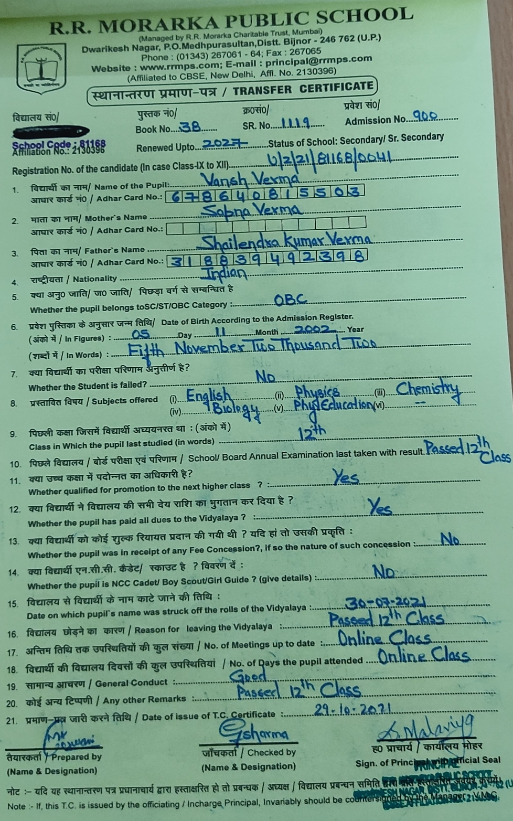 R.R. MORARKA PUBLIC SCHOOL
(Managed by R.R. Morarka Charitable Trust, Mumbai)
Dwarikesh Nagar, P.O.Medhpurasultan,Distt. Bijnor - 246 762 (U.P.)
Phone : (01343) 267061 - 64; Fax : 267065
Website : www.rrmps.com; E-mail : principal@rrmps.com
(Affiliated to CBSE, New Delhi, Affl. No. 2130396)
स्थानान्तरण प्रमाण-पत्र / TRANSFER CERTIFICATE
विद्यालय सं०/ पुस्तक नं०/ क्र०सं०/ प्रवेश सं०/
Book No. 38 SR. No. 1119 Admission No. 900
School Code : 81168
Affiliation No.: 2130396 Renewed Upto Status of School: Secondary/ Sr. Secondary
Registration No. of the candidate (In case Class-IX to XII) U/2/21/81168/0041
1. विद्यार्थी का नाम/ Name of the Pupil: Vansh Verma
आधार कार्ड नं०/ Adhar Card No.: 678640815503
2. माता का नाम/ Mother's Name Sapna Verma
आधार कार्ड नं०/ Adhar Card No.:
3. पिता का नाम/ Father's Name Shailendra Kumar Verma
आधार कार्ड नं०/ Adhar Card No.: 318839492398
4. राष्ट्रीयता / Nationality Indian
5. क्या अनु० जाति/ ज० जाति/ पिछड़ा वर्ग से सम्बन्धित है
Whether pupil belongs toSC/ST/OBC Category : OBC
6. प्रवेश पुस्तिका के अनुसार जन्म तिथि/ Date of Birth According to the Admission Register.
(अंको में / In Figures) : 05 Day 11 Month 2002 Year
(शब्दों में / In Words) : Fifth November Two Thousand Two
7. क्या विद्यार्थी का परीक्षा परिणाम अनुत्तीर्ण है?
Whether the Student is failed? No
8. प्रस्तावित विषय / Subjects offered (i) English (ii) Physics (iii) Chemistry
(iv) Biology (v) Phy Education (vi) —
9. पिछली कक्षा जिसमें विद्यार्थी अध्ययनरत था : (अंको में)
Class in Which the pupil last studied (in words) 12th
10. पिछले विद्यालय / बोर्ड परीक्षा एवं परिणाम / School/ Board Annual Examination last taken with result Passed 12th Class
11. क्या उच्च कक्षा में पदोन्नत का अधिकारी है?
Whether qualified for promotion to the next higher class ? : Yes
12. क्या विद्यार्थी ने विद्यालय की सभी देय राशि का भुगतान कर दिया है ?
Whether the pupil has paid all dues to the Vidyalaya ? : Yes
13. क्या विद्यार्थी को कोई शुल्क रियायत प्रदान की गयी थी ? यदि हां तो उसकी प्रकृति :
Whether the pupil was in receipt of any Fee Concession?, If so the nature of such concession : No
14. क्या विद्यार्थी एन.सी.सी. कैडेट/ स्काउट है ? विवरण दें :
Whether the pupil is NCC Cadet/ Boy Scout/Girl Guide ? (give details) : No
15. विद्यालय से विद्यार्थी के नाम काटे जाने की तिथि :
Date on which pupil's name was struck off the rolls of the Vidyalaya : 30-07-2021
16. विद्यालय छोड़ने का कारण / Reason for leaving the Vidyalaya Passed 12th Class
17. अन्तिम तिथि तक उपस्थितियों की कुल संख्या / No. of Meetings up to date : Online Class
18. विद्यार्थी की विद्यालय दिवसों की कुल उपस्थितियां / No. of Days the pupil attended Online Class
19. सामान्य आचरण / General Conduct : Good
20. कोई अन्य टिप्पणी / Any other Remarks : Passed 12th Class
21. प्रमाण-पत्र जारी करने तिथि / Date of issue of T.C. Certificate : 29-10-2021
तैयारकर्ता / Prepared by जाँचकर्ता / Checked by ह० प्राचार्य / कार्यालय मोहर
(Name & Designation) (Name & Designation) Sign. of Principal with official Seal
नोट :- यदि यह स्थानान्तरण पत्र प्रधानाचार्य द्वारा हस्ताक्षरित हो तो प्रबन्धक / अध्यक्ष / विद्यालय प्रबन्धन समिति
Note :- If, this T.C. is issued by the officiating / Incharge Principal, Invariably should be countersigned by the Manager V.M.C.